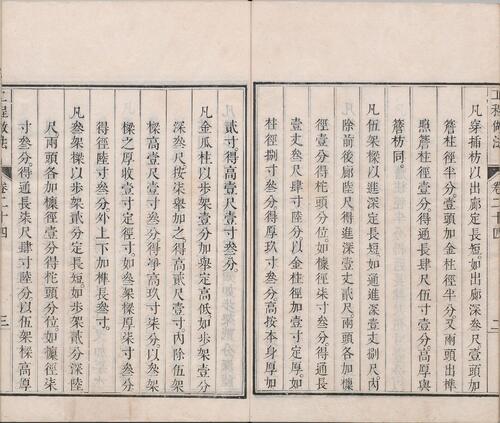 工程做法 卷二十四 二
凡穿插枋以出廊定長短如出廊深叁尺壹頭加
簷柱徑半分壹頭加金柱徑半分又兩頭出榫
照簷柱徑壹分得通長肆尺伍寸壹分高厚與
簷枋同
凡伍架樑以進深定長短如通進深壹丈捌尺內
除前後廊陸尺得進深壹丈貳尺兩頭各加檁
徑壹分得柁頭分位如檁徑柒寸叁分得通長
壹丈叁尺肆寸陸分以金柱徑加壹寸定厚如
柱徑捌寸叁分得厚玖寸叁分高按本身厚加
貳寸得高壹尺壹寸叁分
凡金瓜柱以步架壹分加舉定高低如步架壹分
深叁尺按柒舉加之得高貳尺壹寸內除伍架
樑高壹尺壹寸叁分得凈高玖寸柒分以叁架
樑之厚收壹寸定徑寸如叁架樑厚柒寸叁分
得徑陸寸叁分外上下加榫長叁寸
凡叁架樑以步架貳分定長短如步架貳分深陸
尺兩頭各加檁徑壹分得柁頭分位如檁徑柒
寸叁分得通長柒尺肆寸陸分以伍架樑高厚
工程做法 卷二十四 三